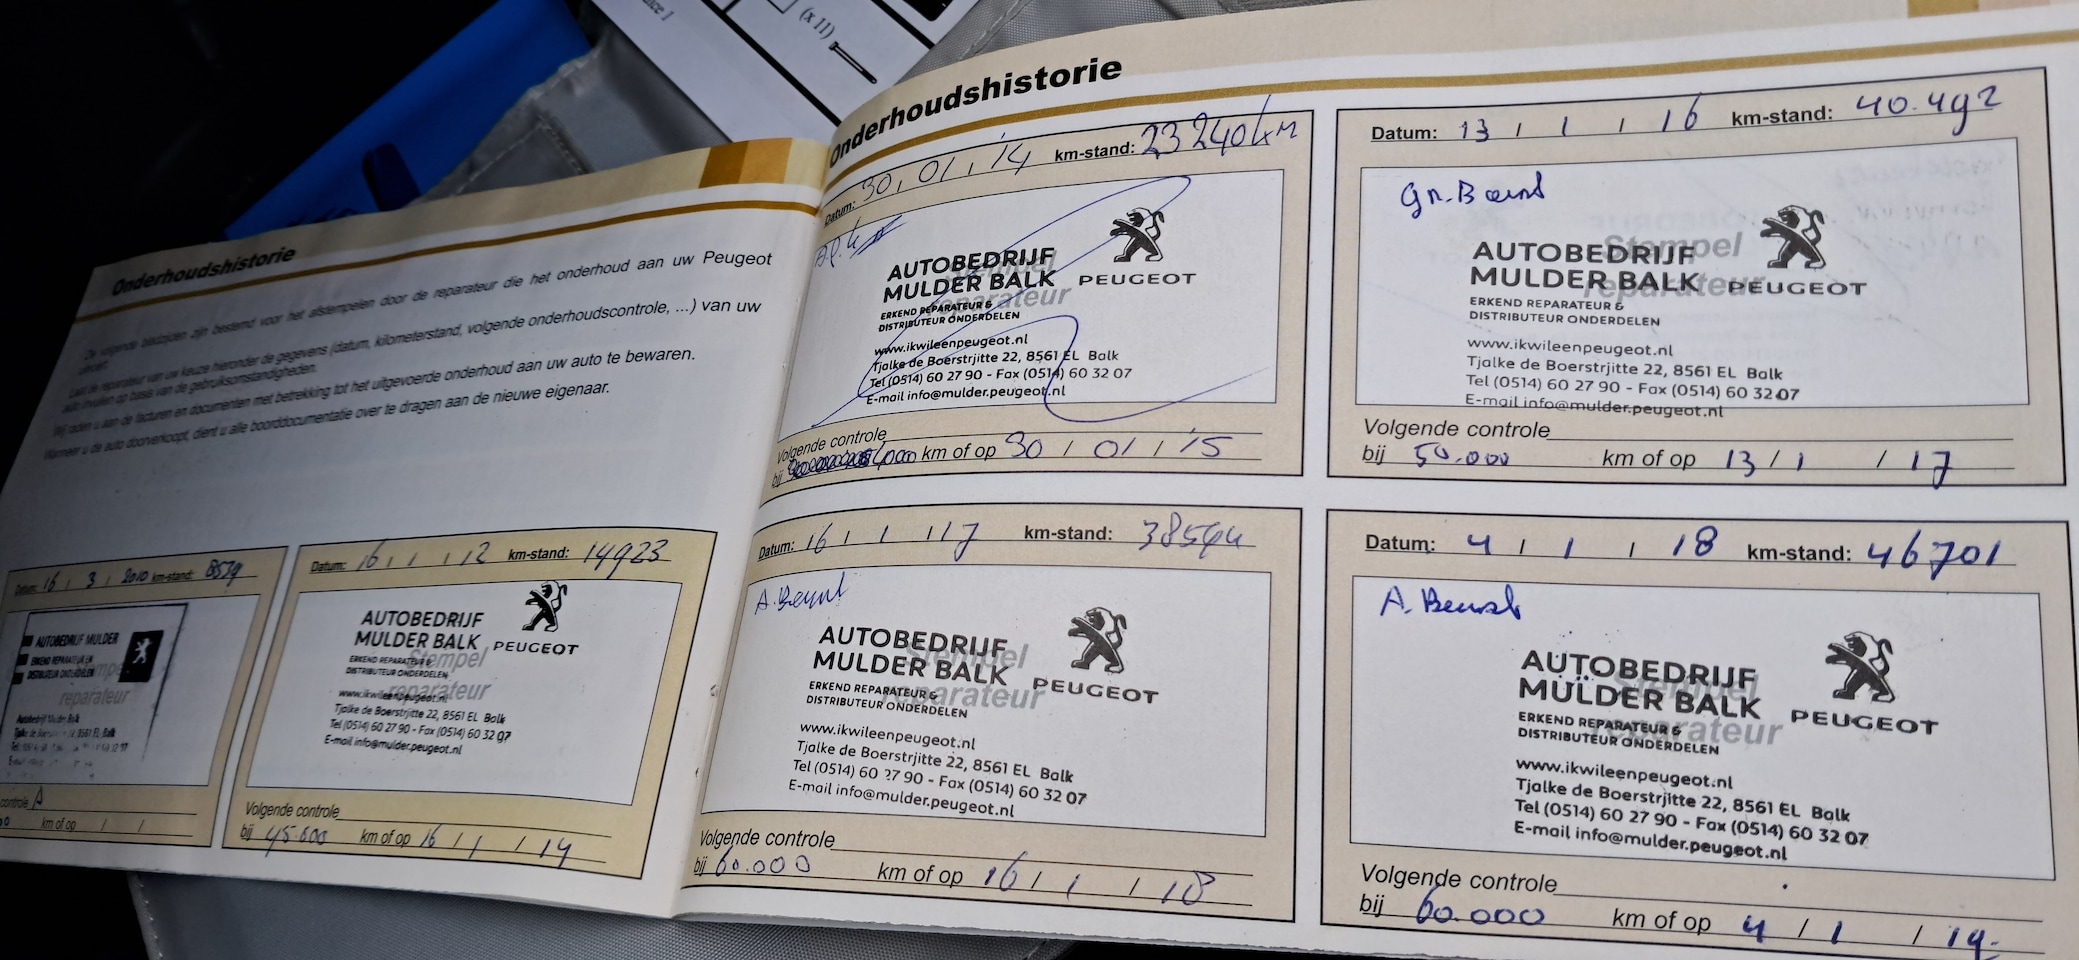 nce 1
(x 11)
Onderhoudshistorie
De volgende bladzijden zijn bestemd voor het afstempelen door de reparateur die het onderhoud aan uw Peugeot
uitvoert.
Laat de reparateur van uw keuze hieronder de gegevens (datum, kilometerstand, volgende onderhoudscontrole, ...) van uw
auto invullen op basis van de gebruiksomstandigheden.
Wij raden u aan de facturen en documenten met betrekking tot het uitgevoerde onderhoud aan uw auto te bewaren.
Wanneer u de auto doorverkoopt, dient u alle boorddocumentatie over te dragen aan de nieuwe eigenaar.
Datum: 16 / 3 / 2010 km-stand:
AUTOBEDRIJF MULDER
ERKEND REPARATEUR EN
DISTRIBUTEUR ONDERDELEN
Stempel
reparateur
Autobedrijf Mulder Balk
Tjalke de 8561 EL Balk
controle
km of op / /
Datum: 16 / 1 / 12 km-stand: 14923
AUTOBEDRIJF
MULDER BALK PEUGEOT
Stempel
ERKEND REPARATEUR &
DISTRIBUTEUR ONDERDELEN
reparateur
www.ikwileenpeugeot.nl
Tjalke de Boerstrjitte 22, 8561 EL Balk
Tel (0514) 60 27 90 - Fax (0514) 60 32 07
E-mail info@mulder.peugeot.nl
Volgende controle
bij 45.000 km of op 16 / 1 / 14
Onderhoudshistorie
Datum: 30 / 01 / '14 km-stand: 23240km
AUTOBEDRIJF
MULDER BALK PEUGEOT
Stempel
reparateur
ERKEND REPARATEUR &
DISTRIBUTEUR ONDERDELEN
www.ikwileenpeugeot.nl
Tjalke de Boerstrjitte 22, 8561 EL Balk
Tel (0514) 60 27 90 - Fax (0514) 60 32 07
E-mail info@mulder.peugeot.nl
Volgende controle
bij km of op 30 / 01 / '15
Datum: 13 / 1 / 16 km-stand: 40.492
AUTOBEDRIJF
MULDER BALK PEUGEOT
Stempel
reparateur
ERKEND REPARATEUR &
DISTRIBUTEUR ONDERDELEN
www.ikwileenpeugeot.nl
Tjalke de Boerstrjitte 22, 8561 EL Balk
Tel (0514) 60 27 90 - Fax (0514) 60 32 07
E-mail info@mulder.peugeot.nl
Volgende controle
bij 50.000 km of op 13 / 1 / 17
Datum: 16 / 1 / 17 km-stand: 38544
AUTOBEDRIJF
MULDER BALK PEUGEOT
Stempel
reparateur
ERKEND REPARATEUR &
DISTRIBUTEUR ONDERDELEN
www.ikwileenpeugeot.nl
Tjalke de Boerstrjitte 22, 8561 EL Balk
Tel (0514) 60 27 90 - Fax (0514) 60 32 07
E-mail info@mulder.peugeot.nl
Volgende controle
bij 60.000 km of op 16 / 1 / 18
Datum: 4 / 1 / 18 km-stand: 46701
AUTOBEDRIJF
MULDER BALK PEUGEOT
Stempel
reparateur
ERKEND REPARATEUR &
DISTRIBUTEUR ONDERDELEN
www.ikwileenpeugeot.nl
Tjalke de Boerstrjitte 22, 8561 EL Balk
Tel (0514) 60 27 90 - Fax (0514) 60 32 07
E-mail info@mulder.peugeot.nl
Volgende controle
bij 60.000 km of op 4 / 1 / 19